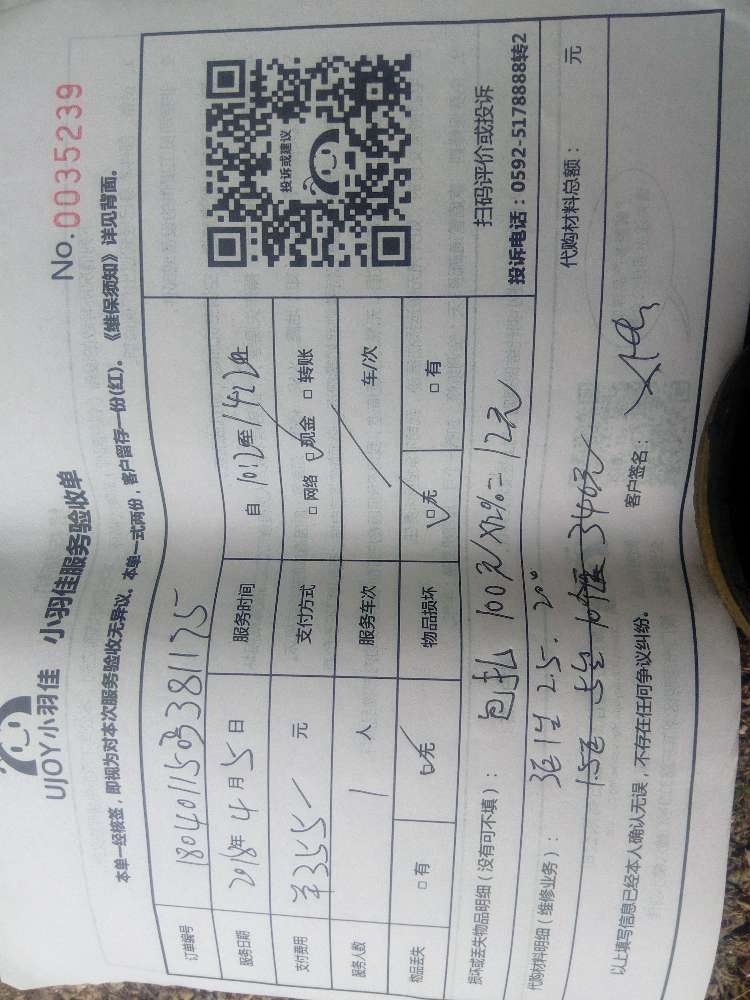 No.0035239
UJOY小羽佳 小羽佳服务验收单
本单一经核签，即视为对本次服务验收无异议。本单一式两份，客户留存一份(红)。《维保须知》详见背面。
订单编号 180401150338 1175
服务日期 2018年4月5日 服务时间 自1012至1422止
支付费用 ¥355 元 支付方式 □网络 □现金 □转账
服务人数 1 人 服务车次 车/次
物品丢失 □有 □无 物品损坏 □无 □有
投诉或建议
扫码评价或投诉
投诉电话：0592-5178888转2
损坏或丢失物品明细（没有可不填）： 100元 12元
代购材料明细（维修业务）： 2.5. 代购材料总额： 元
340元
以上填写信息已经本人确认无误，不存在任何争议纠纷。 客户签名：